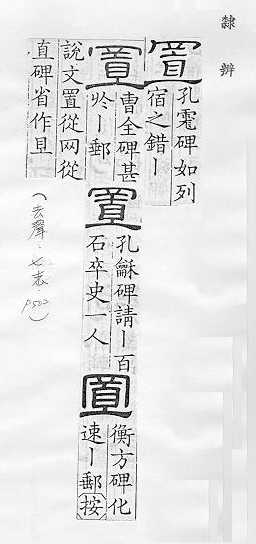 隸辨
置
孔碑如列
宿之錯丨
置
曹全碑甚
於丨郵
置
孔龢碑請丨百
石卒史一人
置
衡方碑化
速丨郵按
說文置從网從
直碑省作且
(去聲.七志.P502)